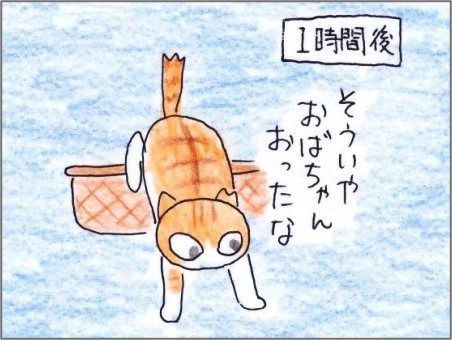 1時間後
そういや
おばちゃん
おったな